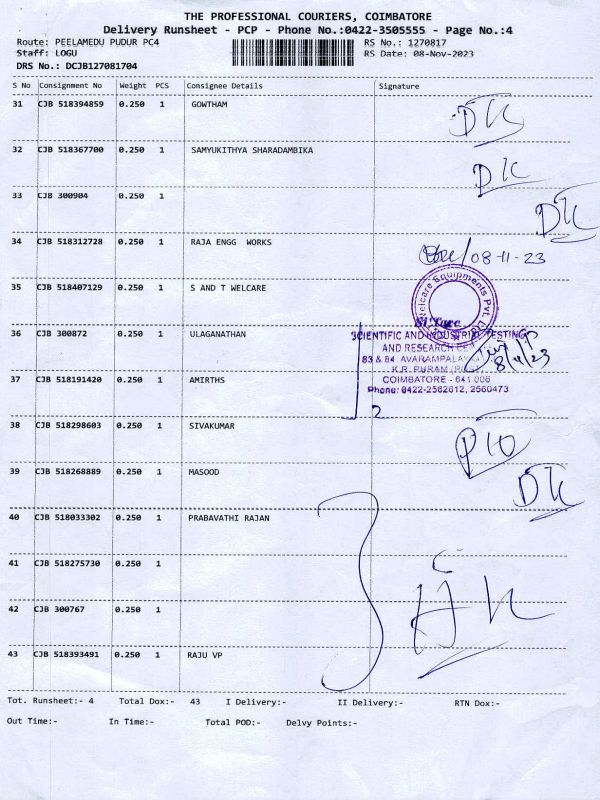 THE PROFESSIONAL COURIERS, COIMBATORE
Delivery Runsheet - PCP - Phone No.:0422-3505555 - Page No.:4
Route: PEELAMEDU PUDUR PC4 RS No.: 1270817
Staff: LOGU RS Date: 08-Nov-2023
DRS No.: DCJB127081704
S No Consignment No Weight PCS Consignee Details Signature
31 CJB 518394859 0.250 1 GOWTHAM
32 CJB 518367700 0.250 1 SAMYUKITHYA SHARADAMBIKA
33 CJB 300904 0.250 1
34 CJB 518312728 0.250 1 RAJA ENGG WORKS
08-11-23
35 CJB 518407129 0.250 1 S AND T WELCARE
Welcare Equipments Pvt.
36 CJB 300872 0.250 1 ULAGANATHAN
SCIENTIFIC AND INDUSTRIAL TESTING
AND RESEARCH
83 & 84, AVARAMPALAYAM
8/11/23
K.R. PURAM
37 CJB 518191420 0.250 1 AMIRTHS
COIMBATORE - 641 006
Phone: 0422-2562612, 2560473
2
38 CJB 518298603 0.250 1 SIVAKUMAR
39 CJB 518268889 0.250 1 MASOOD
40 CJB 518033302 0.250 1 PRABAVATHI RAJAN
41 CJB 518275730 0.250 1
42 CJB 300767 0.250 1
43 CJB 518393491 0.250 1 RAJU VP
Tot. Runsheet:- 4 Total Dox:- 43 I Delivery:- II Delivery:- RTN Dox:-
Out Time:- In Time:- Total POD:- Delvy Points:-